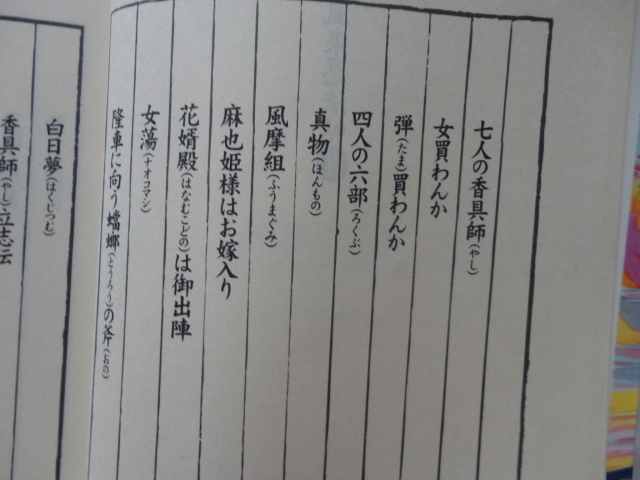 七人の香具師(やし)
女買わんか
弾(たま)買わんか
四人の六部(ろくぶ)
真物(ほんもの)
風摩組(ふうまぐみ)
麻也姫様はお嫁入り
花婿殿(はなむこどの)は御出陣
女蕩(ナオコマシ)
隆車に向う蟷螂(とうろう)の斧(おの)
白日夢(はくじつむ)
香具師(やし)立志伝